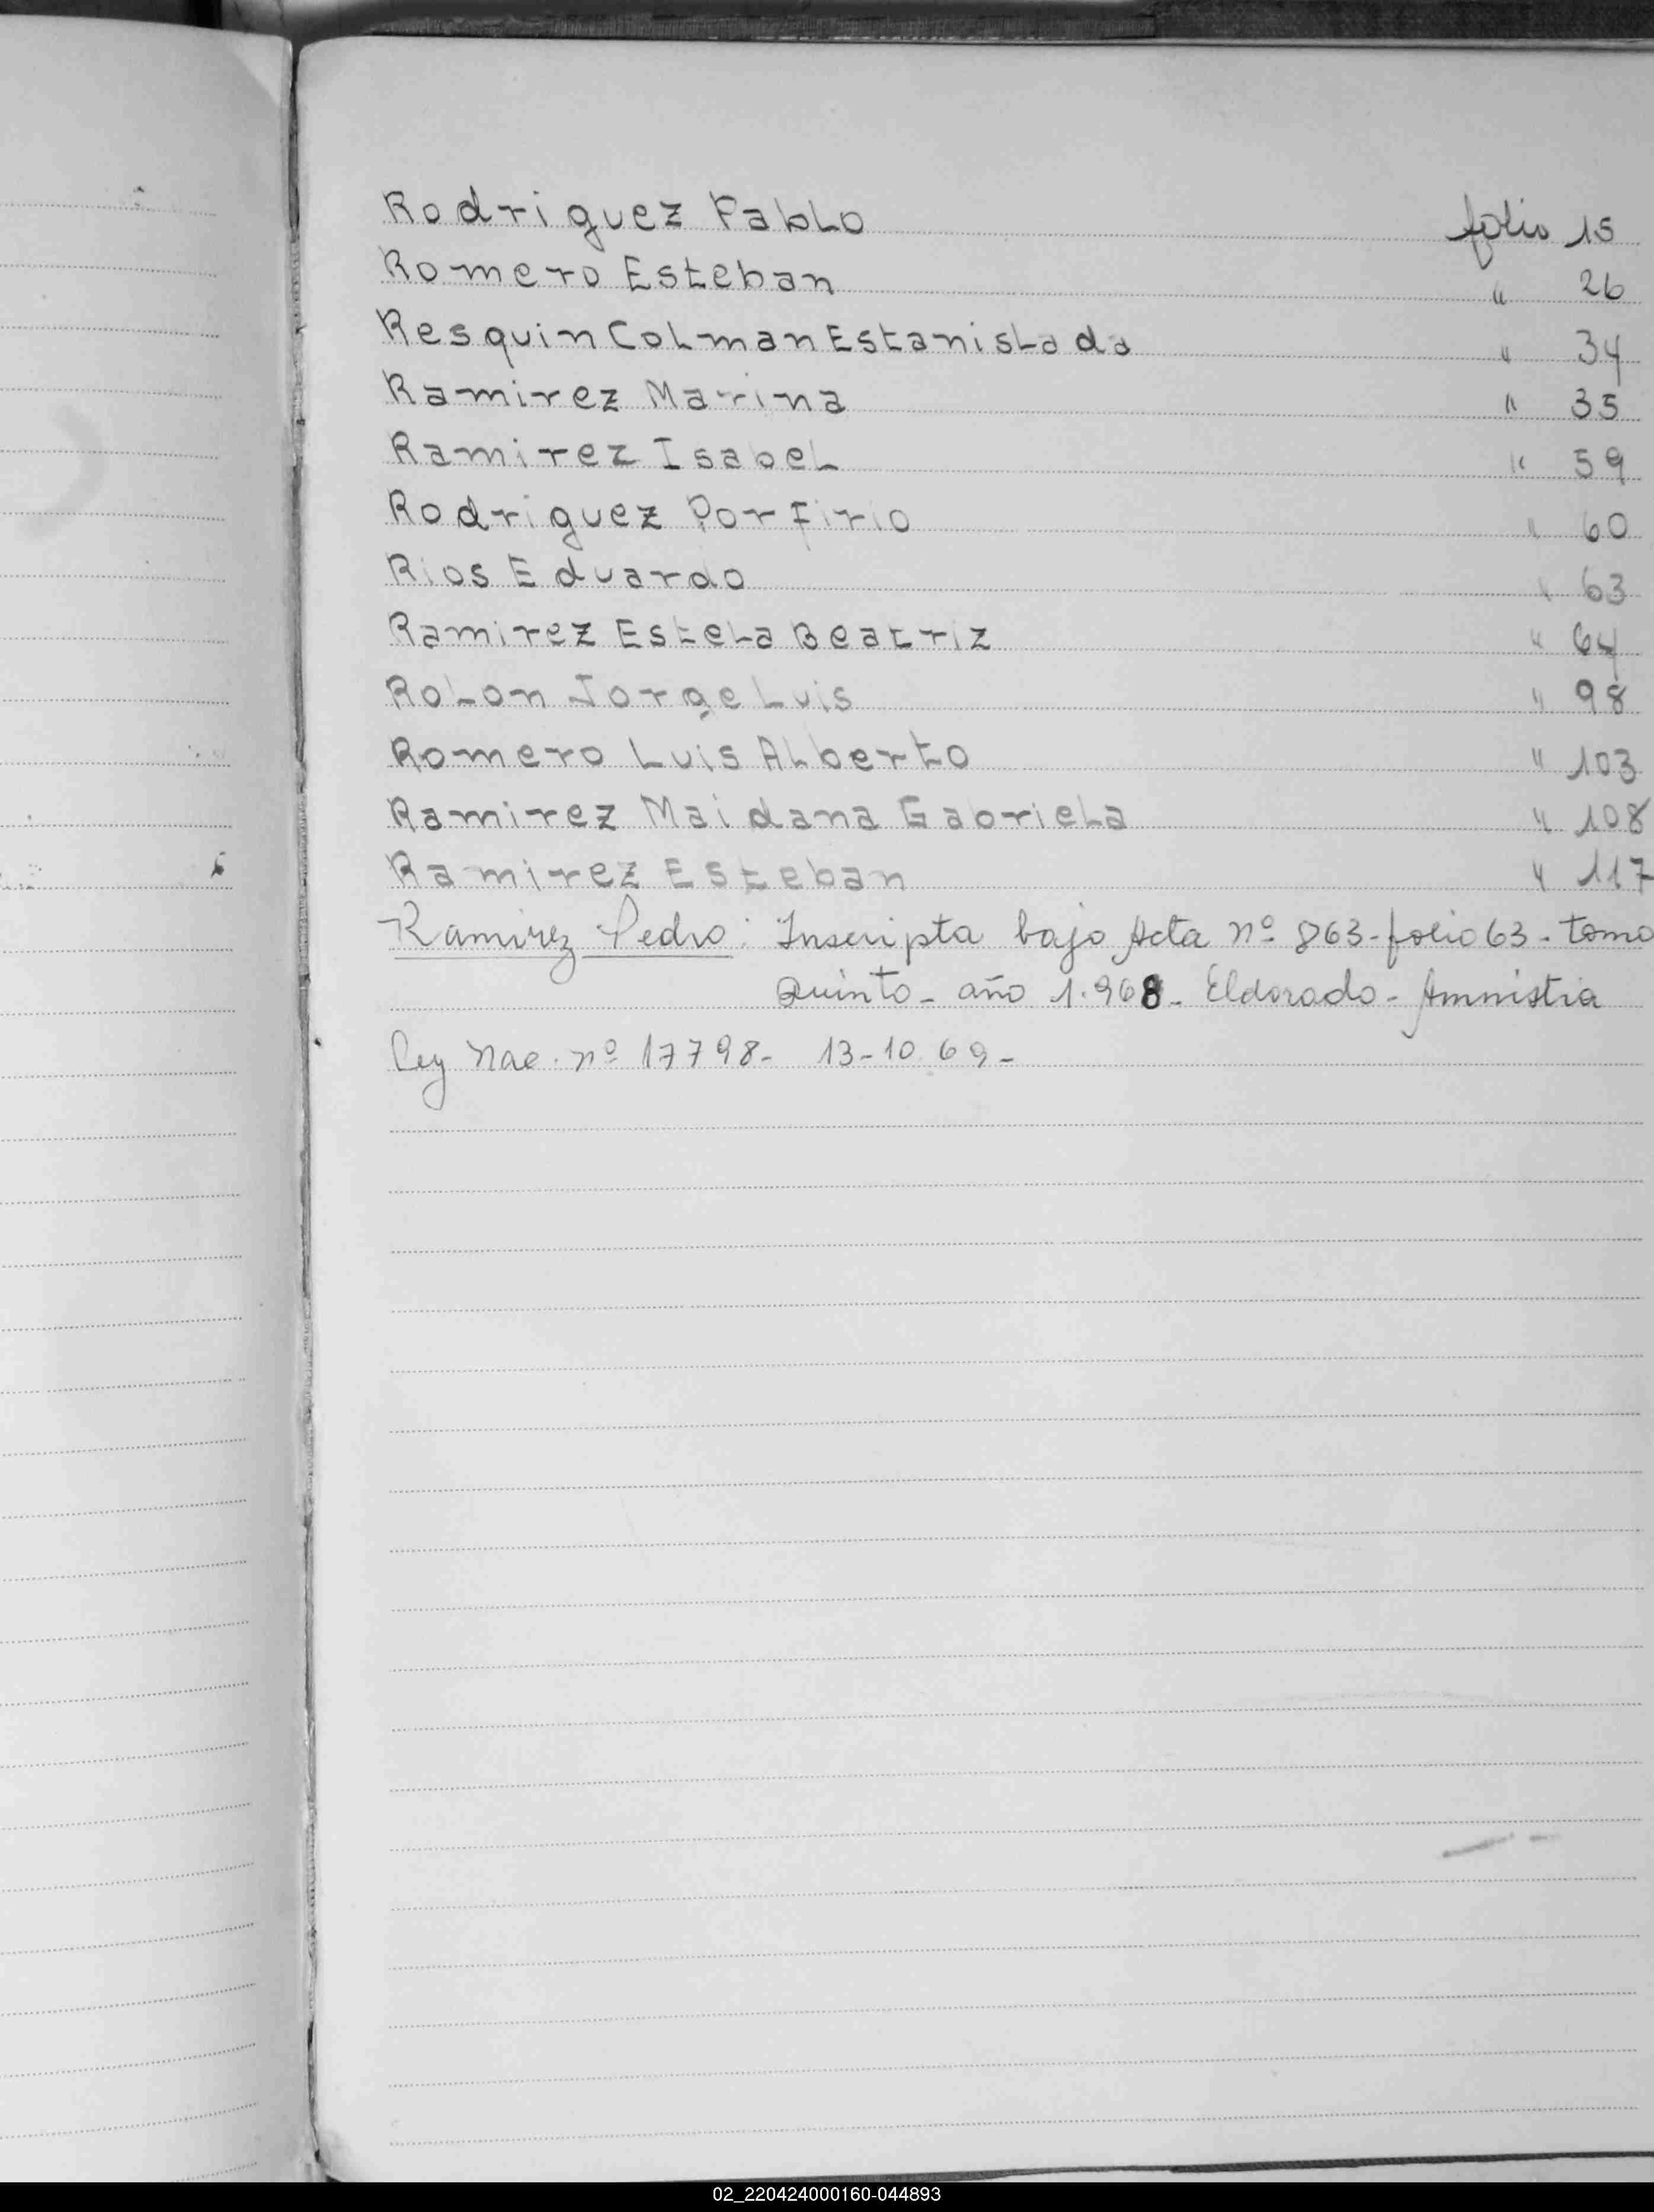 Rodriguez Pablo folio 15
Romero Esteban " 26
Resquin Colman Estanislada " 34
Ramirez Marina " 35
Ramirez Isabel " 59
Rodriguez Porfirio " 60
Rios Eduardo " 63
Ramirez Estela Beatriz " 64
Rolon Jorge Luis " 98
Romero Luis Alberto " 103
Ramirez Maidana Gabriela " 108
Ramirez Esteban " 117
Ramirez Pedro: Inscripta bajo Acta nº 863-folio 63-tomo
Quinto-año 1.968-Eldorado-Amnistia
Ley Nac. nº 17798- 13-10.69-
02_220424000160-044893